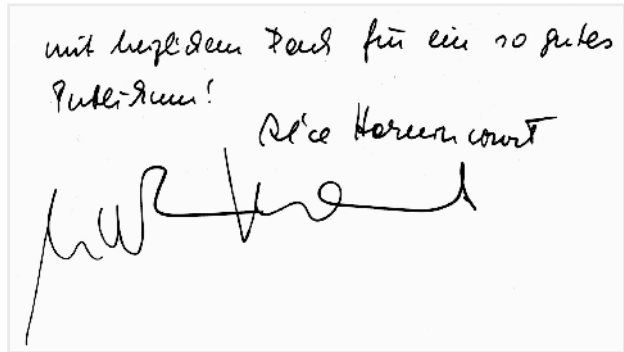 mit herzlichem Dank für ein so gutes
Publikum!
Alice Harnoncourt